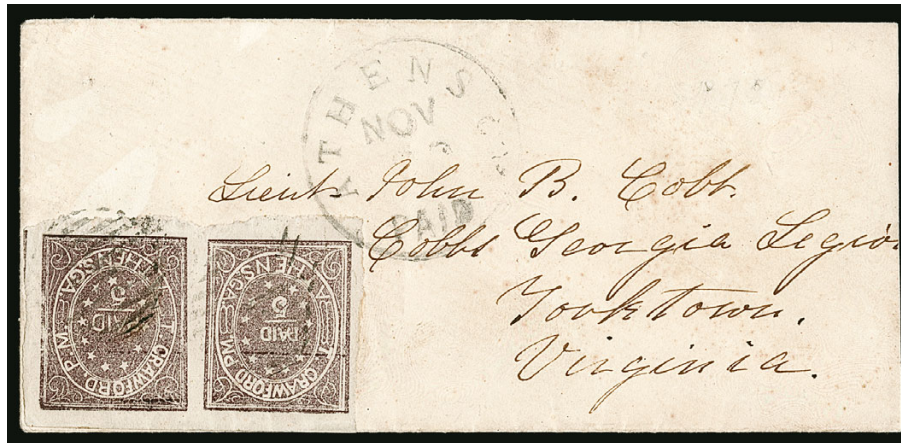 ATHENS GA.
NOV
PAID
Lieut. John B. Cobb.
Cobbs Georgia Legion
Yorktown.
Virginia.
ATHENS GA.
PAID
5
T. CRAWFORD P.M.
ATHENS GA.
PAID
5
T. CRAWFORD P.M.